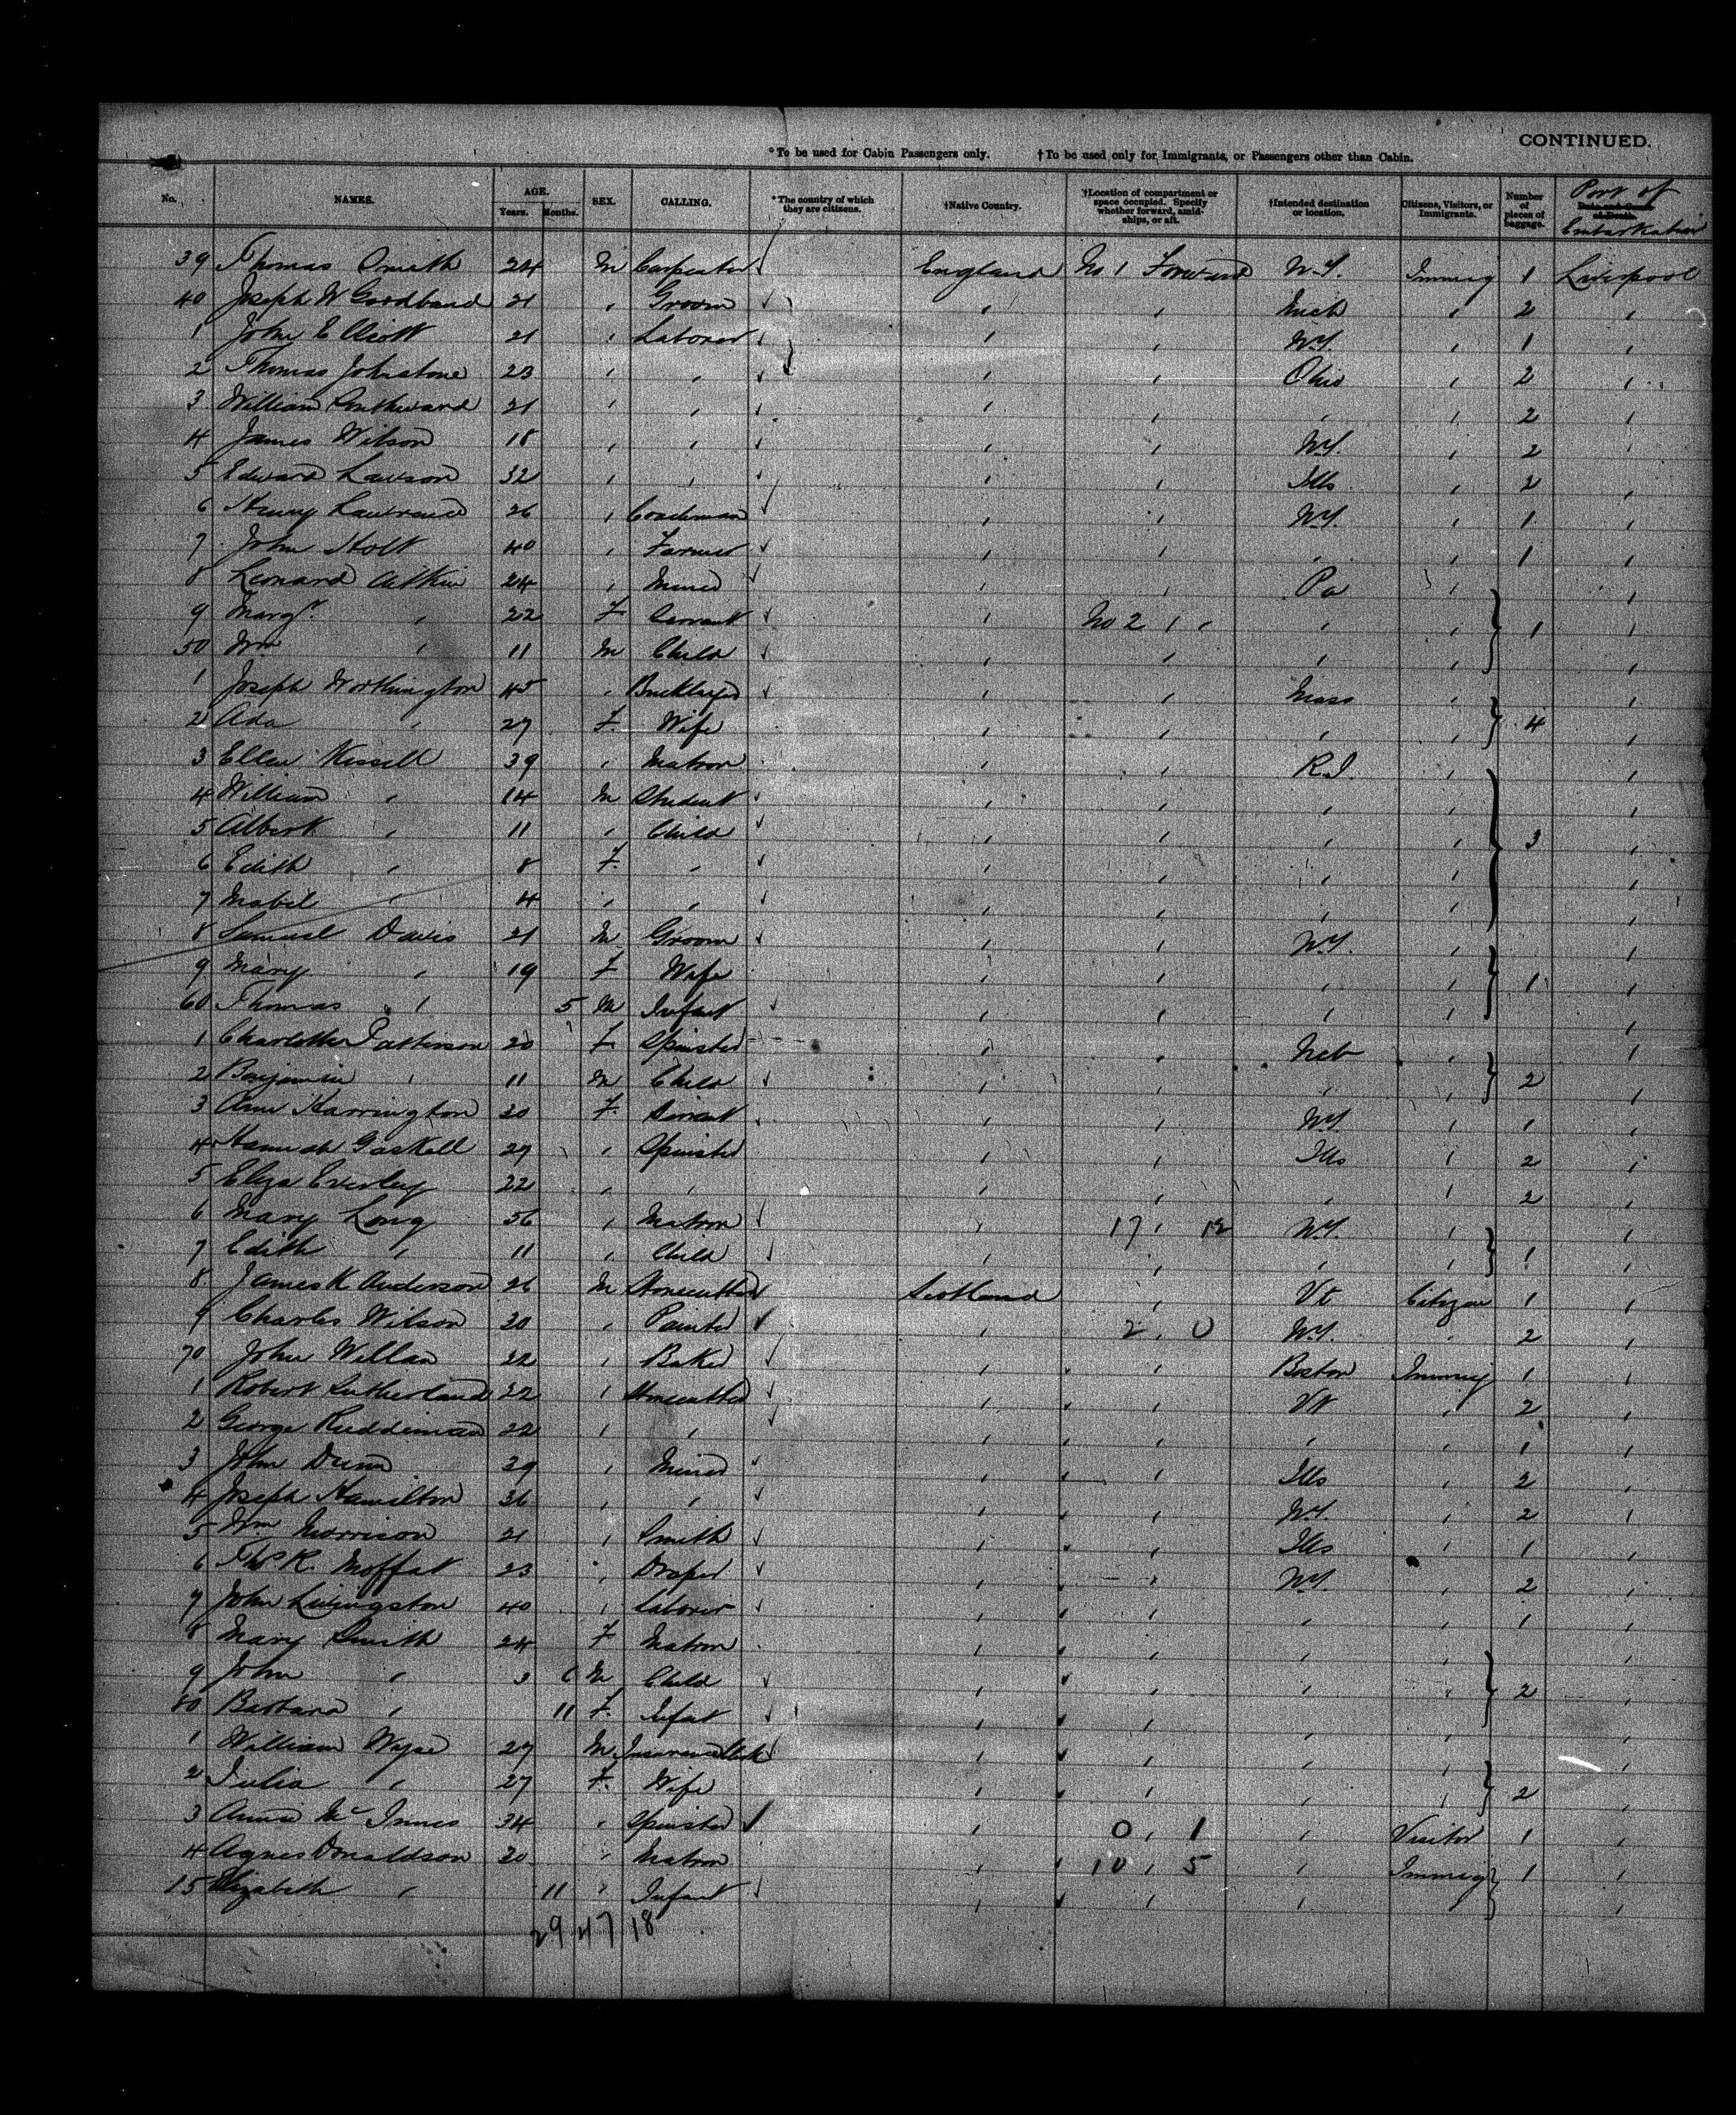 CONTINUED.
*To be used for Cabin Passengers only. †To be used only for Immigrants, or Passengers other than Cabin.
No. NAMES. AGE. Years. Months. SEX. CALLING. *The country of which they are citizens. †Native Country. †Location of compartment or space occupied. Specify whether forward, amidships, or aft. †Intended destination or location. Citizens, Visitors, or Immigrants. Number of pieces of baggage. Port of Embarkation
39 Thomas Smith 24 M Carpenter England No 1 Forward N.Y. Immig 1 Liverpool
40 Joseph W Goodband 21 , Groom , , Mich , 2 ,
1 John Elliott 21 , Laborer , , N.Y. , 1 ,
2 Thomas Johnstone 23 , , , , Ohio , 2 ,
3 William Southward 21 , , , , , , 2 ,
4 James Wilson 18 , , , , N.Y. , 2 ,
5 Edward Lawson 32 , , , , Ills , 2 ,
6 Henry Lawrence 26 , Coachman , , N.Y. , 1 ,
7 John Holt 40 , Farmer , , , , 1 ,
8 Leonard Aitkin 24 , Miner , , Pa , ,
9 Margt , 22 F Servant , No 2 , , , , 1 ,
50 Wm , 11 M Child , , , , ,
1 Joseph Worthington 45 , Bricklayer , , Mass , ,
2 Ada , 27 F. Wife , , , , 4 ,
3 Ellen Kissell 39 , Matron , , R.I. , ,
4 William , 14 M Student , , , , ,
5 Albert , 11 , Child , , , , 3 ,
6 Edith , 8 F. , , , , , ,
7 Mabel , 4 , , , , , , ,
8 Samuel Davis 21 M Groom , , N.Y. , ,
9 Mary , 19 F Wife , , , , 1 ,
60 Thomas , 5 M Infant , , , , ,
1 Charlotte Patterson 20 F Spinster , , Neb , ,
2 Benjamin , 11 M Child , , , , 2 ,
3 Ann Harrington 30 F. Servant , , N.Y. , 1 ,
4 Hannah Gaskell 29 , Spinster , , Ills , 2 ,
5 Eliza Eversley 22 , , , , , , 2 ,
6 Mary Long 56 , Matron , 17 , 12 N.Y. , ,
7 Edith , 11 , Child , , , , 1 ,
8 James K Anderson 26 M Stonecutter Scotland , Vt Citizen 1 ,
9 Charles Wilson 30 , Painter , 2 , 0 N.Y. , 2 ,
70 John Willan 22 , Baker , , Boston Immig 1 ,
1 Robert Sutherland 32 , Stonecutter , , Vt , 2 ,
2 George Ruddiman 22 , , , , , , 1 ,
3 John Dunn 39 , Miner , , Ills , 2 ,
4 Joseph Hamilton 36 , , , , N.Y. , 2 ,
5 Wm Morrison 21 , Smith , , Ills , 1 ,
6 Thos R. Moffat 23 , Draper , , N.Y. , 2 ,
7 John Livingston 40 , Laborer , , , , 1 ,
8 Mary Smith 24 F Matron , , , , ,
9 John , 3 6 M Child , , , , 2 ,
80 Barbara , 11 F. Infant , , , , ,
1 William Wyse 27 M Insurance Clerk , , , , ,
2 Julia , 27 F. Wife , , , , 2 ,
3 Annie McInnes 34 , Spinster , 0 , 1 , Visitor 1 ,
4 Agnes Donaldson 30 , Matron , 10 , 5 , Immig 1 ,
15 Elizabeth , 11 , Infant , , , ,
29 47 18